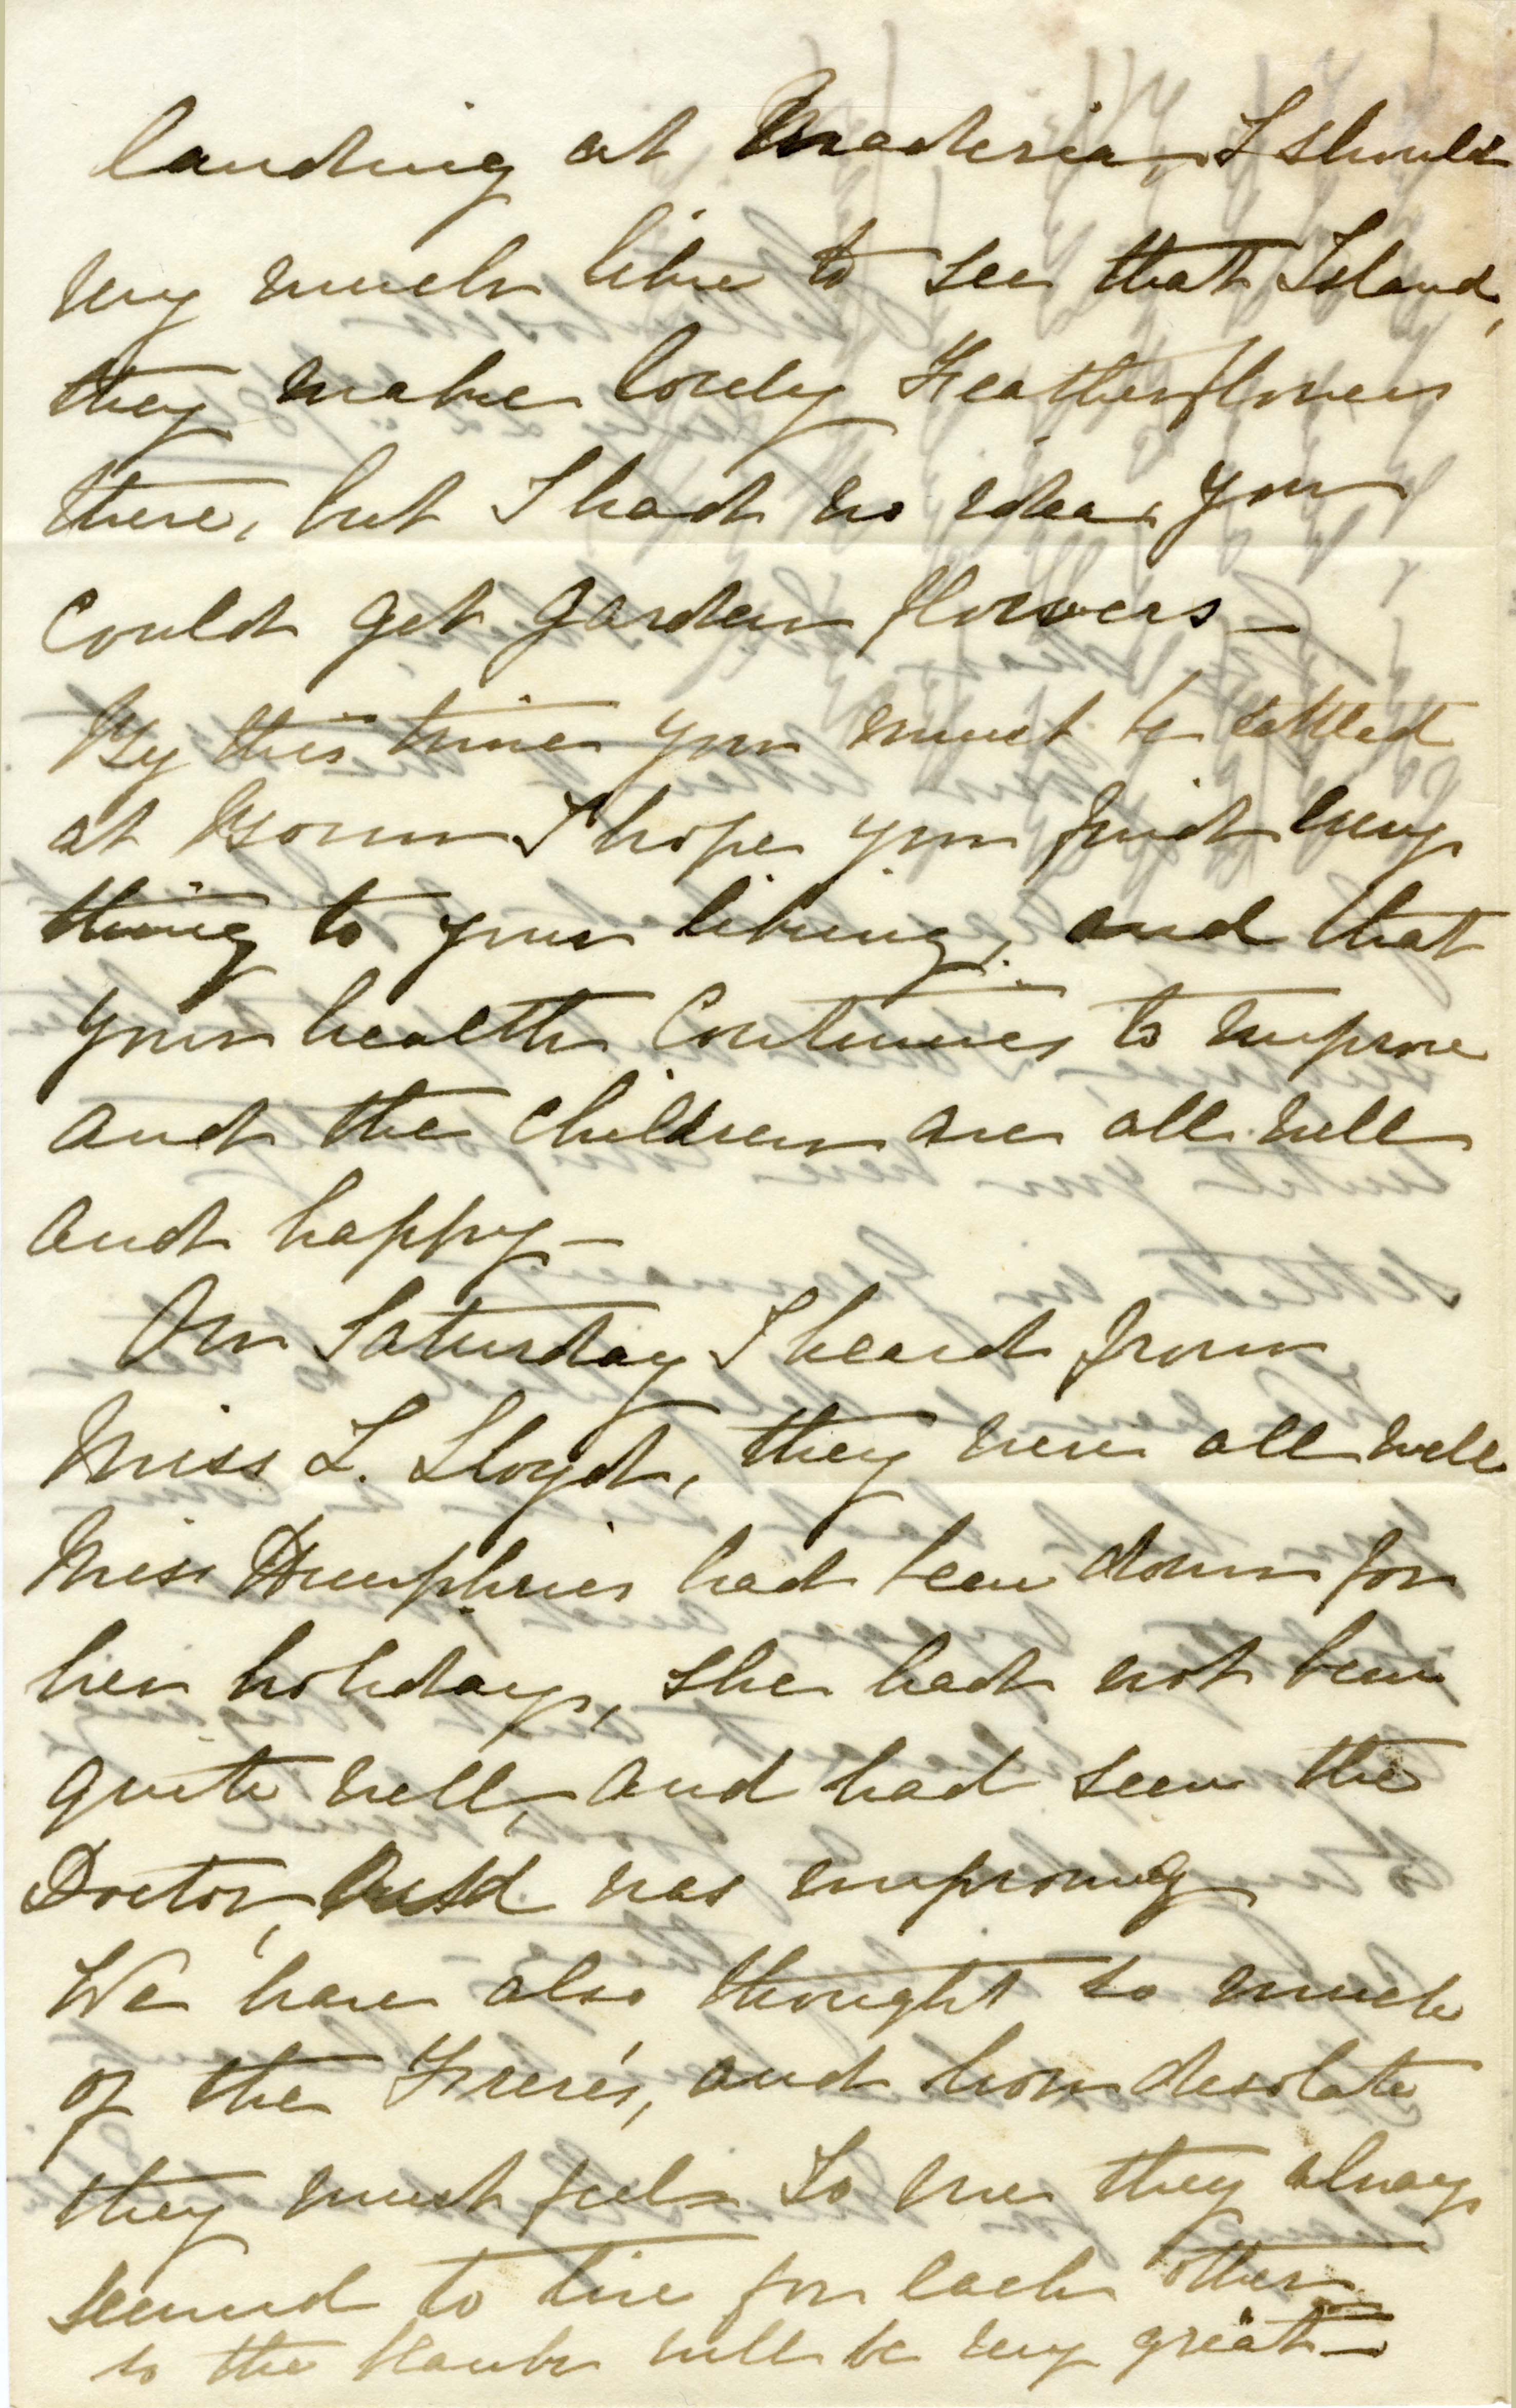 landing at Maderia, I should
very much like to see that Island,
they make lovely Featherflowers
there, but I had no idea you
Could get garden flowers —
By this time you must be settled
at Bonn I hope you find every
thing to your liking, and that
your health Continues to improve
and the Children are all well
and happy —
On Saturday I heard from
Miss L. Lloyd, they were all well
Miss Humphries had been down for
her holiday, she had not been
quite well, and had seen the
Doctor, and was improving
We have also thought so much
of the Frere's, and how desolate
they must feel — To me they always
seemed to live for each other
so the blank will be very great —